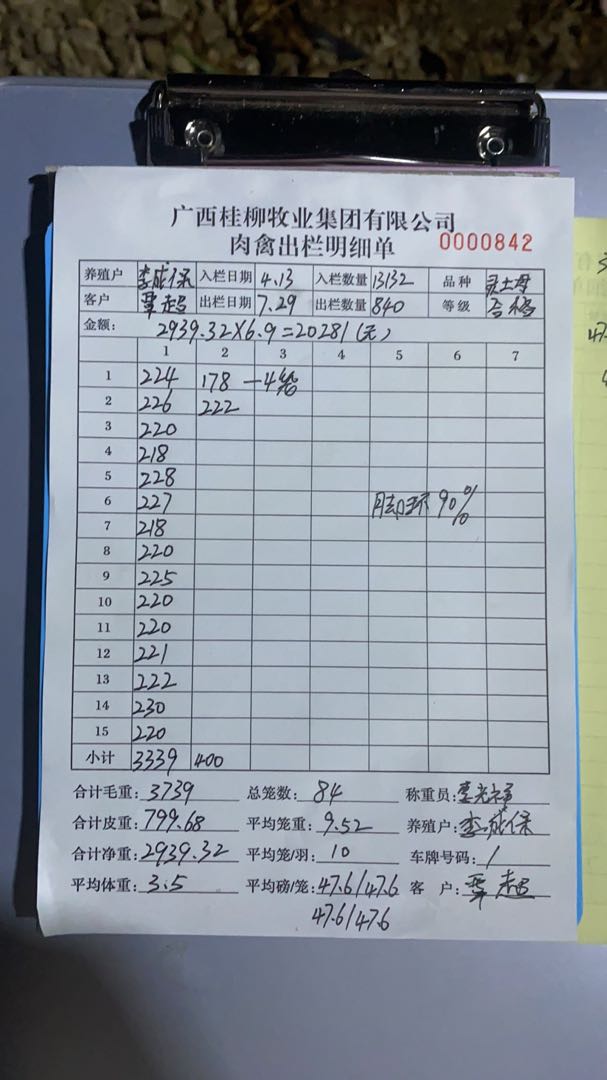 广西桂柳牧业集团有限公司
肉禽出栏明细单 0000842
养殖户 李成保 入栏日期 4.13 入栏数量 13132 品种 灵土母
客户 覃超 出栏日期 7.29 出栏数量 840 等级 合格
金额: 2939.32×6.9=20281(元)
1 2 3 4 5 6 7
1 224 178 —4笼
2 226 222
3 220
4 218
5 228
6 227 脚环90%
7 218
8 220
9 225
10 220
11 220
12 221
13 222
14 230
15 220
小计 3339 400
合计毛重: 3739 总笼数: 84 称重员:
合计皮重: 799.68 平均笼重: 9.52 养殖户: 李成保
合计净重: 2939.32 平均笼/羽: 10 车牌号码: /
平均体重: 3.5 平均磅/笼: 47.6/47.6 客 户: 覃超
47.6/47.6